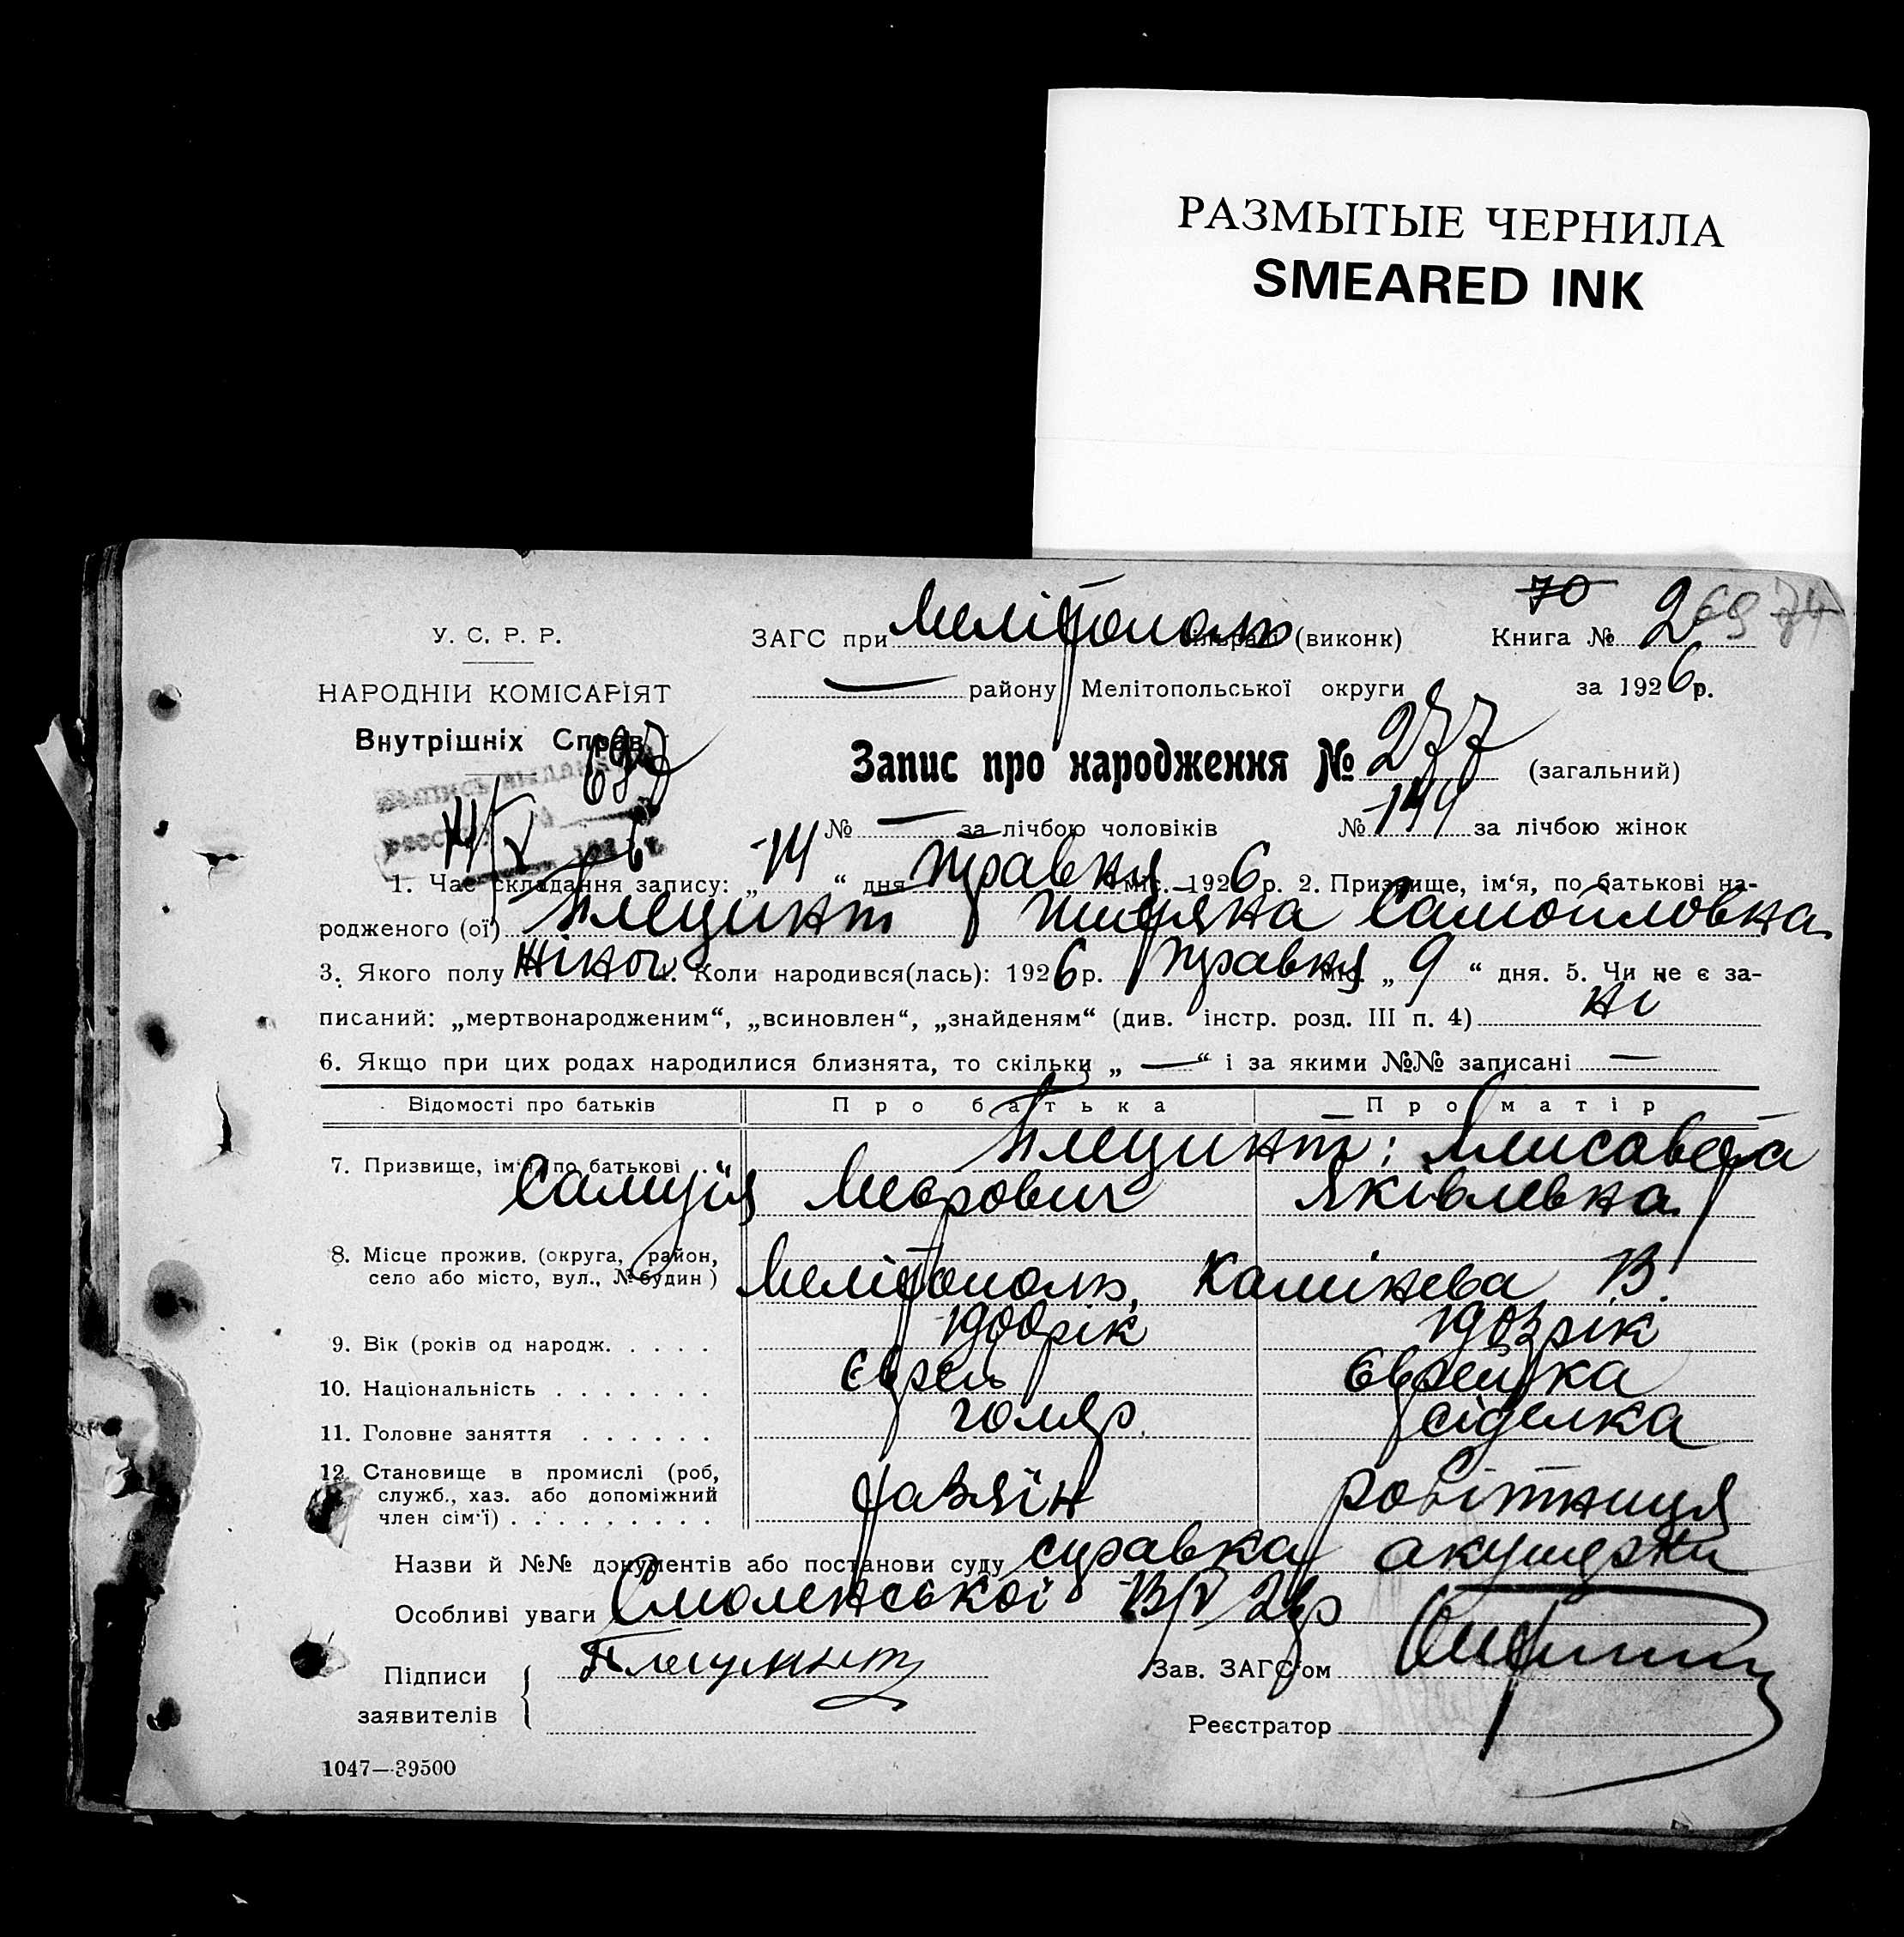 РАЗМЫТЫЕ ЧЕРНИЛА
SMEARED INK
70
2 69 74
У. С. Р. Р.
ЗАГС при Мелітополь (виконк) Книга №
НАРОДНІЙ КОМІСАРІЯТ
— району Мелітопольської округи за 1926 р.
Внутрішніх Справ
697
Запис про народження № 277 (загальний)
14/V 26
№ — за лічбою чоловіків № 144 за лічбою жінок
1. Час складання запису: „14“ дня травня міс. 1926 р. 2. Призвище, ім'я, по батькові на-
родженого (ої) Самоиловна
3. Якого полу жіноч 4. Коли народився(лась): 1926 р. травня міс. „9“ дня. 5. Чи не є за-
писаний: „мертвонародженим“, „всиновлен“, „знайденям“ (див. інстр. розд. III п. 4) ні
6. Якщо при цих родах народилися близнята, то скільки „—“ і за якими №№ записані —
Відомості про батьків Про батька Про матір
7. Призвище, ім'я, по батькові . . Плецинт: Єлисавета
Самуїл Меєрович Яківлевна
8. Місце прожив. (округа, район,
село або місто, вул., № будин) Мелітополь, Камінева 13.
9. Вік (років од народж. . . . . 1900 рік 1903 рік
10. Національність . . . . . . . Єврей Єврейка
11. Головне заняття . . . . . . голяр. сіделка
12. Становище в промислі (роб,
служб., хаз. або допоміжний хазяїн робітниця
член сім'ї) . . . . . . . . .
Назви й №№ документів або постанови суду справка акушерки
Особливі уваги Смоленської 13/V 26 р
Підписи
заявителів
Зав. ЗАГС'ом
Реєстратор
1047—39500